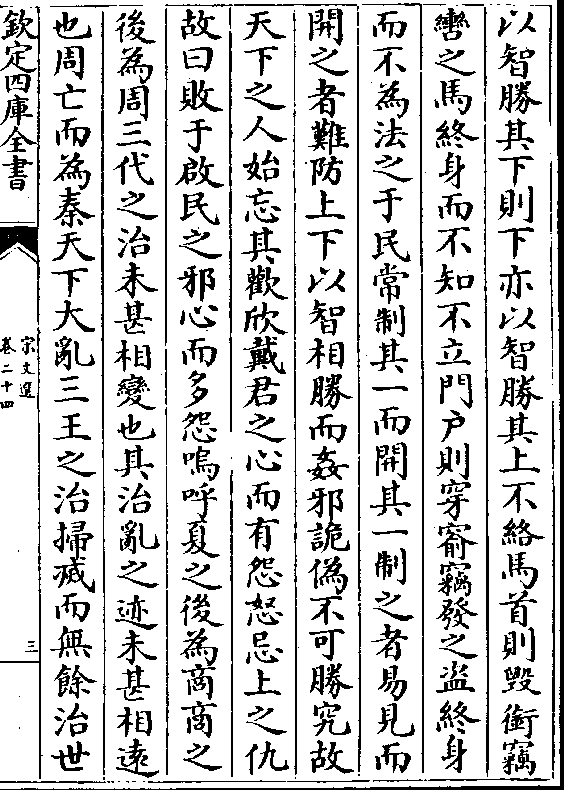 以智勝其下則下亦以智勝其上不絡馬首則毀銜竊
轡之馬終身而不知不立門户則穿窬竊發之盗終身
而不為法之于民常制其一而開其一制之者易見而
開之者難防上下以智相勝而姦邪詭偽不可勝究故
天下之人始忘其歡欣戴君之心而有怨怒忌上之仇
故曰敗于啟民之邪心而多怨嗚呼夏之後為商商之
後為周三代之治未甚相變也其治亂之迹未甚相逺
也周亡而為秦天下大亂三王之治掃滅而無餘治世
欽定四庫全書
宋文選
卷二十四
三